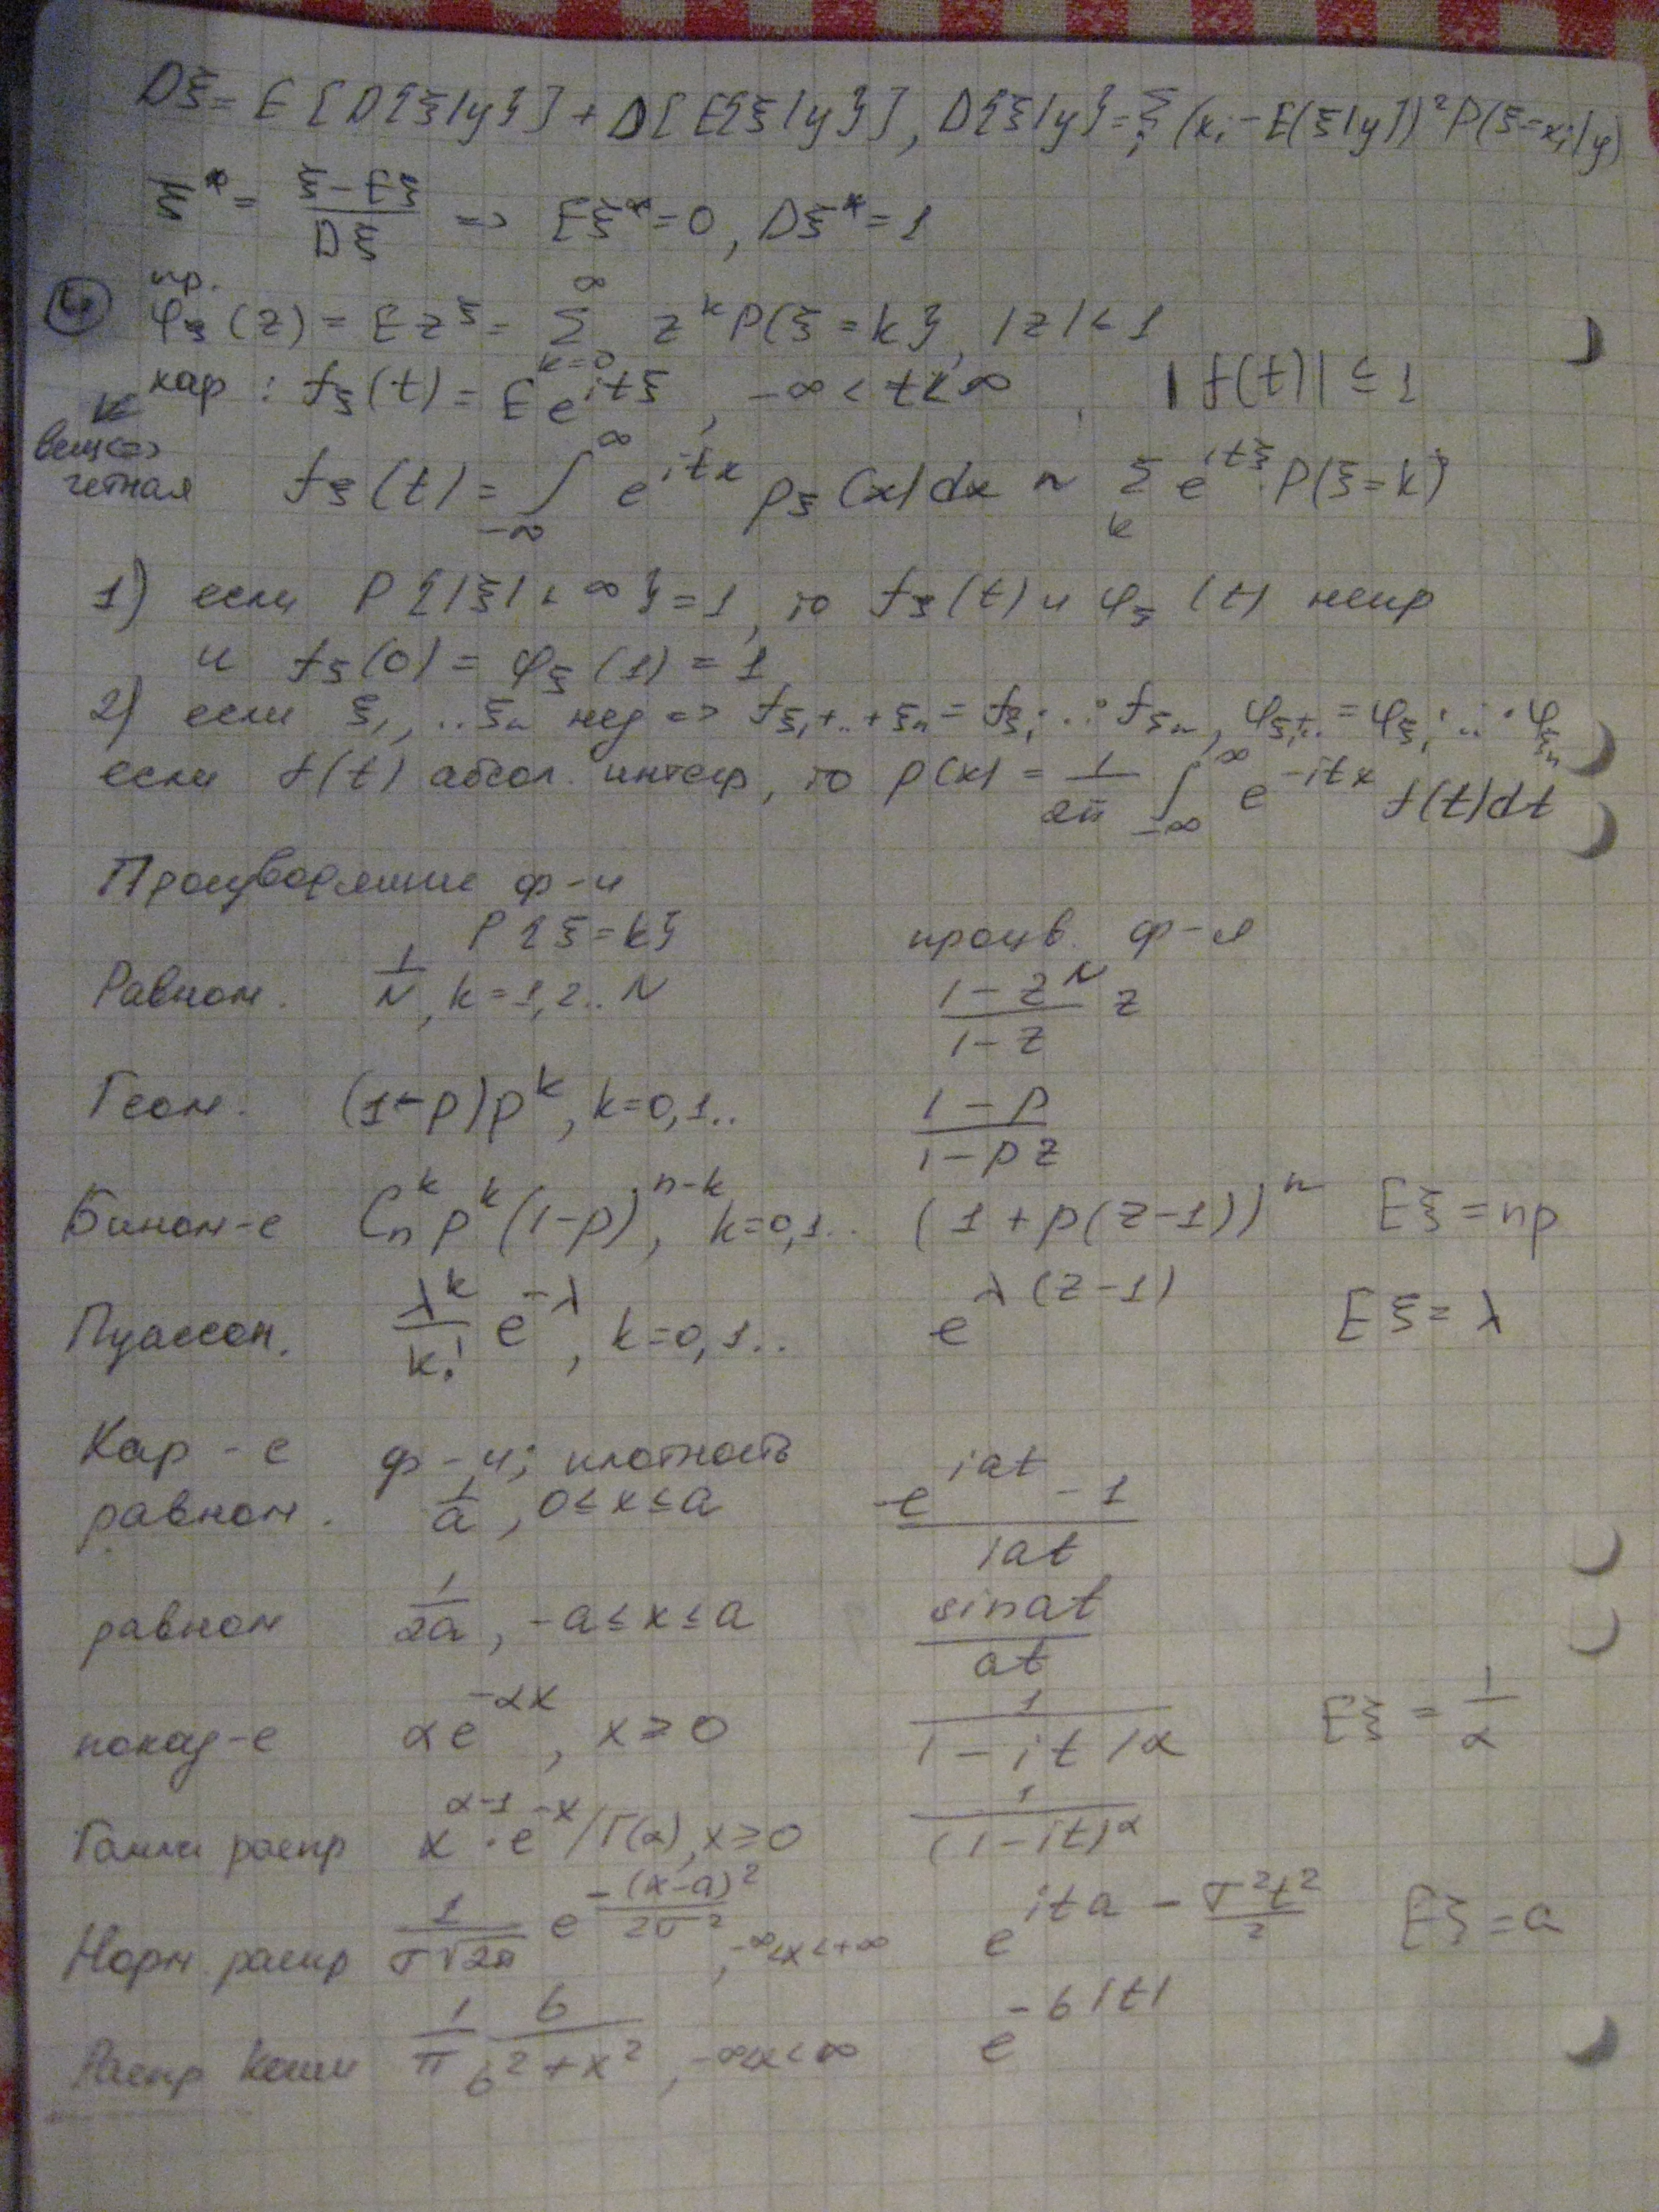 Dξ = E{D{ξ|y}} + D{E{ξ|y}}, D{ξ|y} = Σ_i (x_i − E(ξ|y))² P(ξ=x_i|y)
ξ* = (ξ − Eξ)/Dξ => Eξ* = 0, Dξ* = 1
пр.
④ φ_ξ(z) = E z^ξ = Σ_{k=0}^∞ z^k P(ξ = k}, |z| < 1
хар : f_ξ(t) = E e^{itξ}, −∞ < t < ∞, |f(t)| ≤ 1
вещ <=>
четная f_ξ(t) = ∫_{−∞}^{∞} e^{itx} p_ξ(x)dx ~ Σ_k e^{itξ} P(ξ=k}
1) если P{|ξ| < ∞} = 1, то f_ξ(t) и φ_ξ(t) непр
и f_ξ(0) = φ_ξ(1) = 1
2) если ξ₁, .. ξ_n нез => f_{ξ₁+..+ξ_n} = f_{ξ₁}·..·f_{ξ_n}, φ_{ξ₁+..} = φ_{ξ₁}·..·φ_{ξ_n}
если f(t) абсол. интегр, то p(x) = 1/2π ∫_{−∞}^{∞} e^{−itx} f(t)dt
Производящие ф-и
P{ξ=k} произв. ф-я
Равном. 1/N, k = 1,2..N (1−z^N)/(1−z) z
Геом. (1−p)p^k, k=0,1.. (1−p)/(1−pz)
Бином-е C_n^k p^k (1−p)^{n−k}, k=0,1.. (1 + p(z−1))^n Eξ = np
Пуассон. λ^k/k! e^{−λ}, k=0,1.. e^{λ(z−1)} Eξ = λ
Хар-е ф-и; плотность
равном. 1/a, 0≤x≤a (e^{iat} − 1)/iat
равном 1/2a, −a≤x≤a sinat/at
показ-е αe^{−αx}, x≥0 1/(1−it/α) Eξ = 1/α
Гамма распр x^{α−1}·e^{−x}/Γ(α), x≥0 1/(1−it)^α
Норм. распр 1/(σ√2π) e^{−(x−a)²/2σ²}, −∞<x<+∞ e^{ita − σ²t²/2} Eξ = a
Распр Коши 1/π b/(b²+x²), −∞<x<∞ e^{−b|t|}